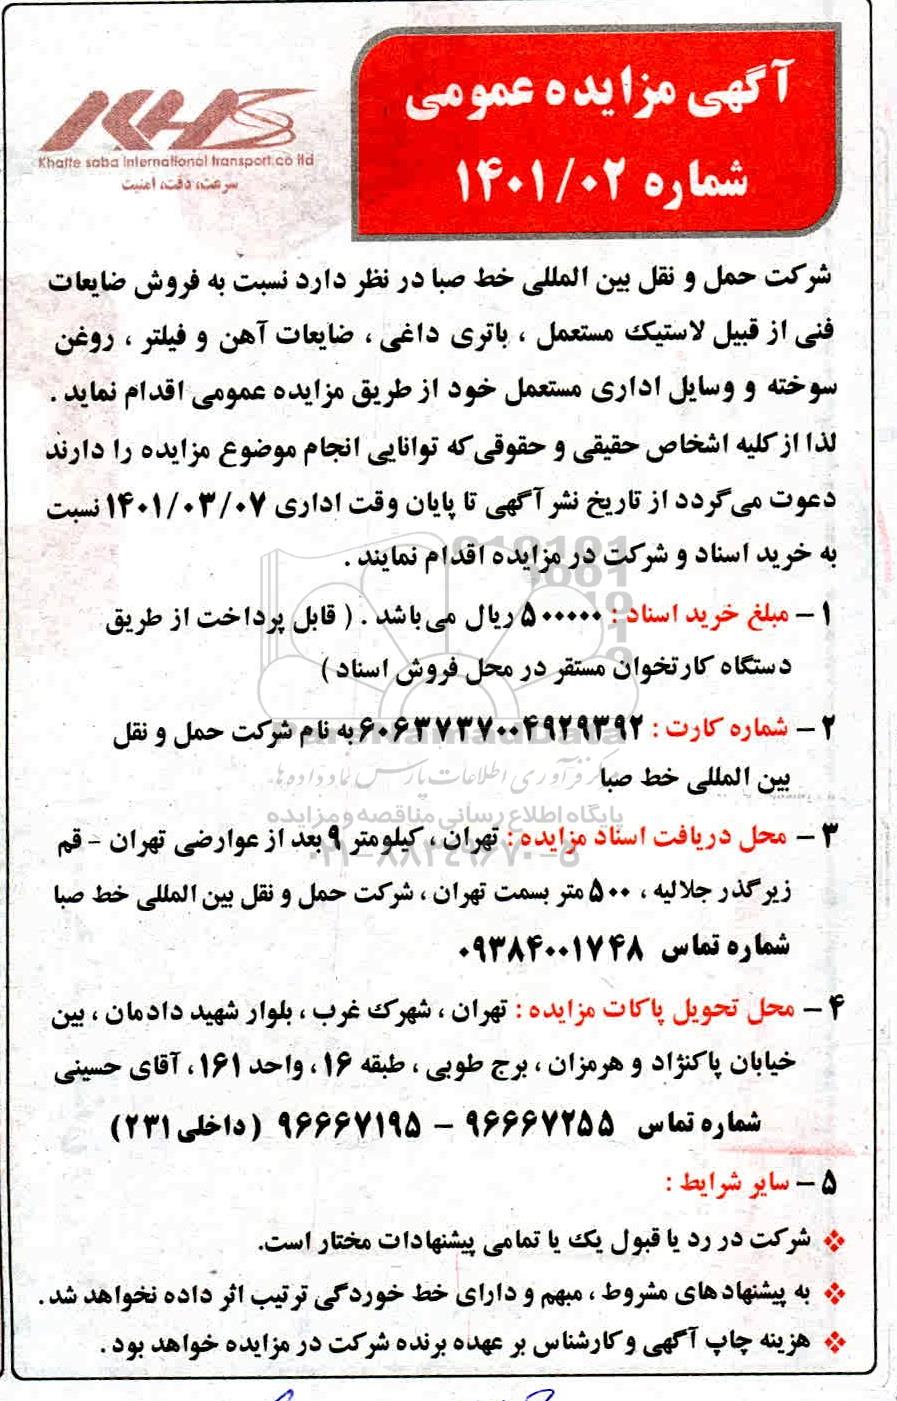 آگهی مزایده عمومی
شماره ۱۴۰۱/۰۲
Khatte saba International transport.co ltd
سرعت، دقت، امنیت
شرکت حمل و نقل بین المللی خط صبا در نظر دارد نسبت به فروش ضایعات
فنی از قبیل لاستیک مستعمل ، باتری داغی ، ضایعات آهن و فیلتر ، روغن
سوخته و وسایل اداری مستعمل خود از طریق مزایده عمومی اقدام نماید .
لذا از کلیه اشخاص حقیقی و حقوقی که توانایی انجام موضوع مزایده را دارند
دعوت می‌گردد از تاریخ نشر آگهی تا پایان وقت اداری ۱۴۰۱/۰۳/۰۷ نسبت
به خرید اسناد و شرکت در مزایده اقدام نمایند .
۱ – مبلغ خرید اسناد : ۵۰۰۰۰۰ ریال می‌باشد . ( قابل پرداخت از طریق
دستگاه کارتخوان مستقر در محل فروش اسناد )
۲ – شماره کارت : ۶۰۶۳۷۳۷۰۰۴۹۲۹۳۹۲ به نام شرکت حمل و نقل
بین المللی خط صبا
پایگاه اطلاع رسانی مناقصه و مزایده
۳ – محل دریافت اسناد مزایده : تهران ، کیلومتر ۹ بعد از عوارضی تهران – قم
۰۲۱-۸۸۳۴۹۶۷۰-۵
زیر گذر جلالیه ، ۵۰۰ متر بسمت تهران ، شرکت حمل و نقل بین المللی خط صبا
شماره تماس ۰۹۳۸۴۰۰۱۷۴۸
۴ – محل تحویل پاکات مزایده : تهران ، شهرک غرب ، بلوار شهید دادمان ، بین
خیابان پاکنژاد و هرمزان ، برج طوبی ، طبقه ۱۶ ، واحد ۱۶۱ ، آقای حسینی
شماره تماس ۹۶۶۶۷۲۵۵ – ۹۶۶۶۷۱۹۵ (داخلی ۲۳۱)
۵ – سایر شرایط :
شرکت در رد یا قبول یک یا تمامی پیشنهادات مختار است.
به پیشنهاد های مشروط ، مبهم و دارای خط خوردگی ترتیب اثر داده نخواهد شد .
هزینه چاپ آگهی و کارشناس بر عهده برنده شرکت در مزایده خواهد بود .